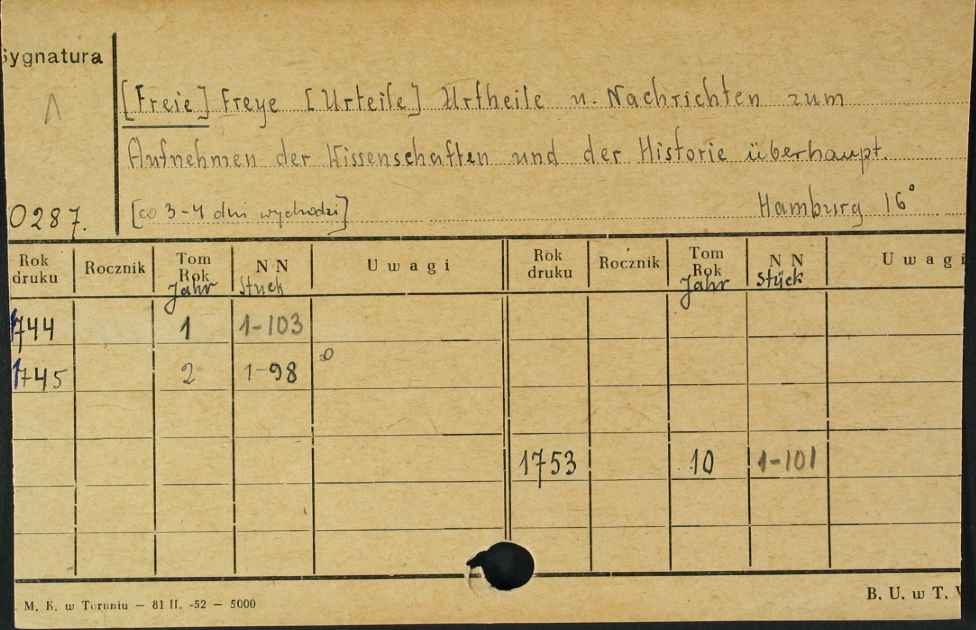 Sygnatura
[Freie] Freye [Urteile] Urtheile u. Nachrichten zum
Aufnehmen der Wissenschaften und der Historie überhaupt.
0287. [co 3-4 dni wychodzi] Hamburg 16°
Rok druku Rocznik Tom Rok Jahr NN Stück Uwagi Rok druku Rocznik Tom Rok Jahr NN Stück Uwagi
1744 1 1-103
1745 2 1-98
1753 10 1-101
M. K. w Toruniu — 81 II. -52 — 5000 B. U. w T.